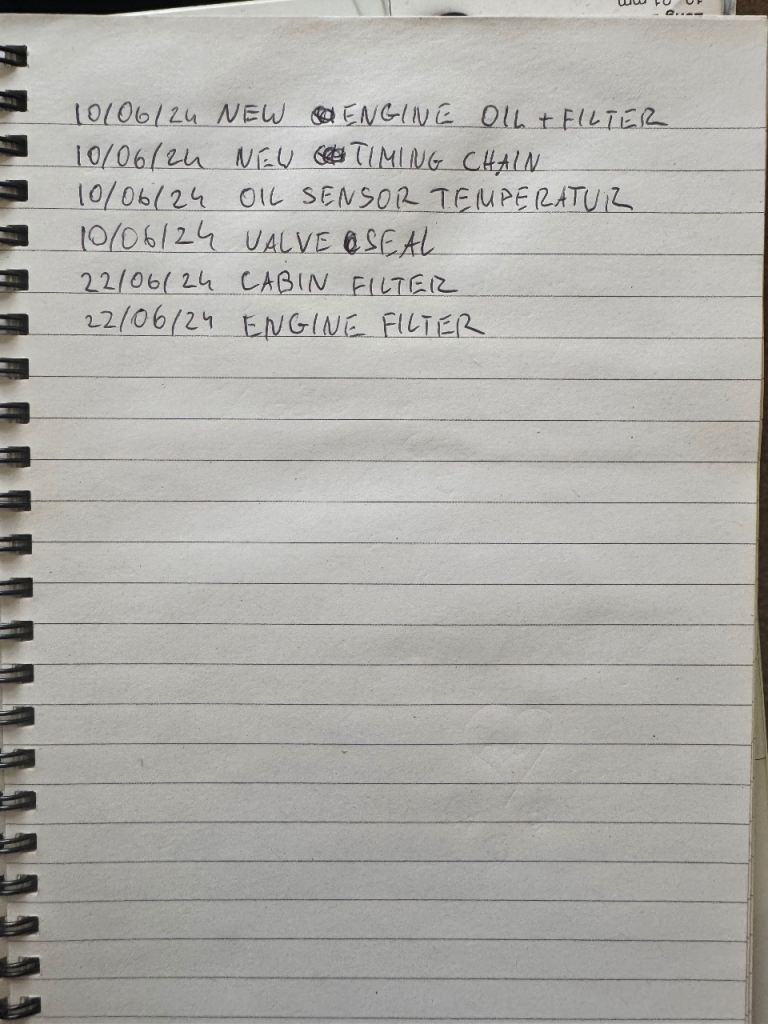 10/06/24 NEW ENGINE OIL + FILTER
10/06/24 NEW TIMING CHAIN
10/06/24 OIL SENSOR TEMPERATUR
10/06/24 VALVE SEAL
22/06/24 CABIN FILTER
22/06/24 ENGINE FILTER